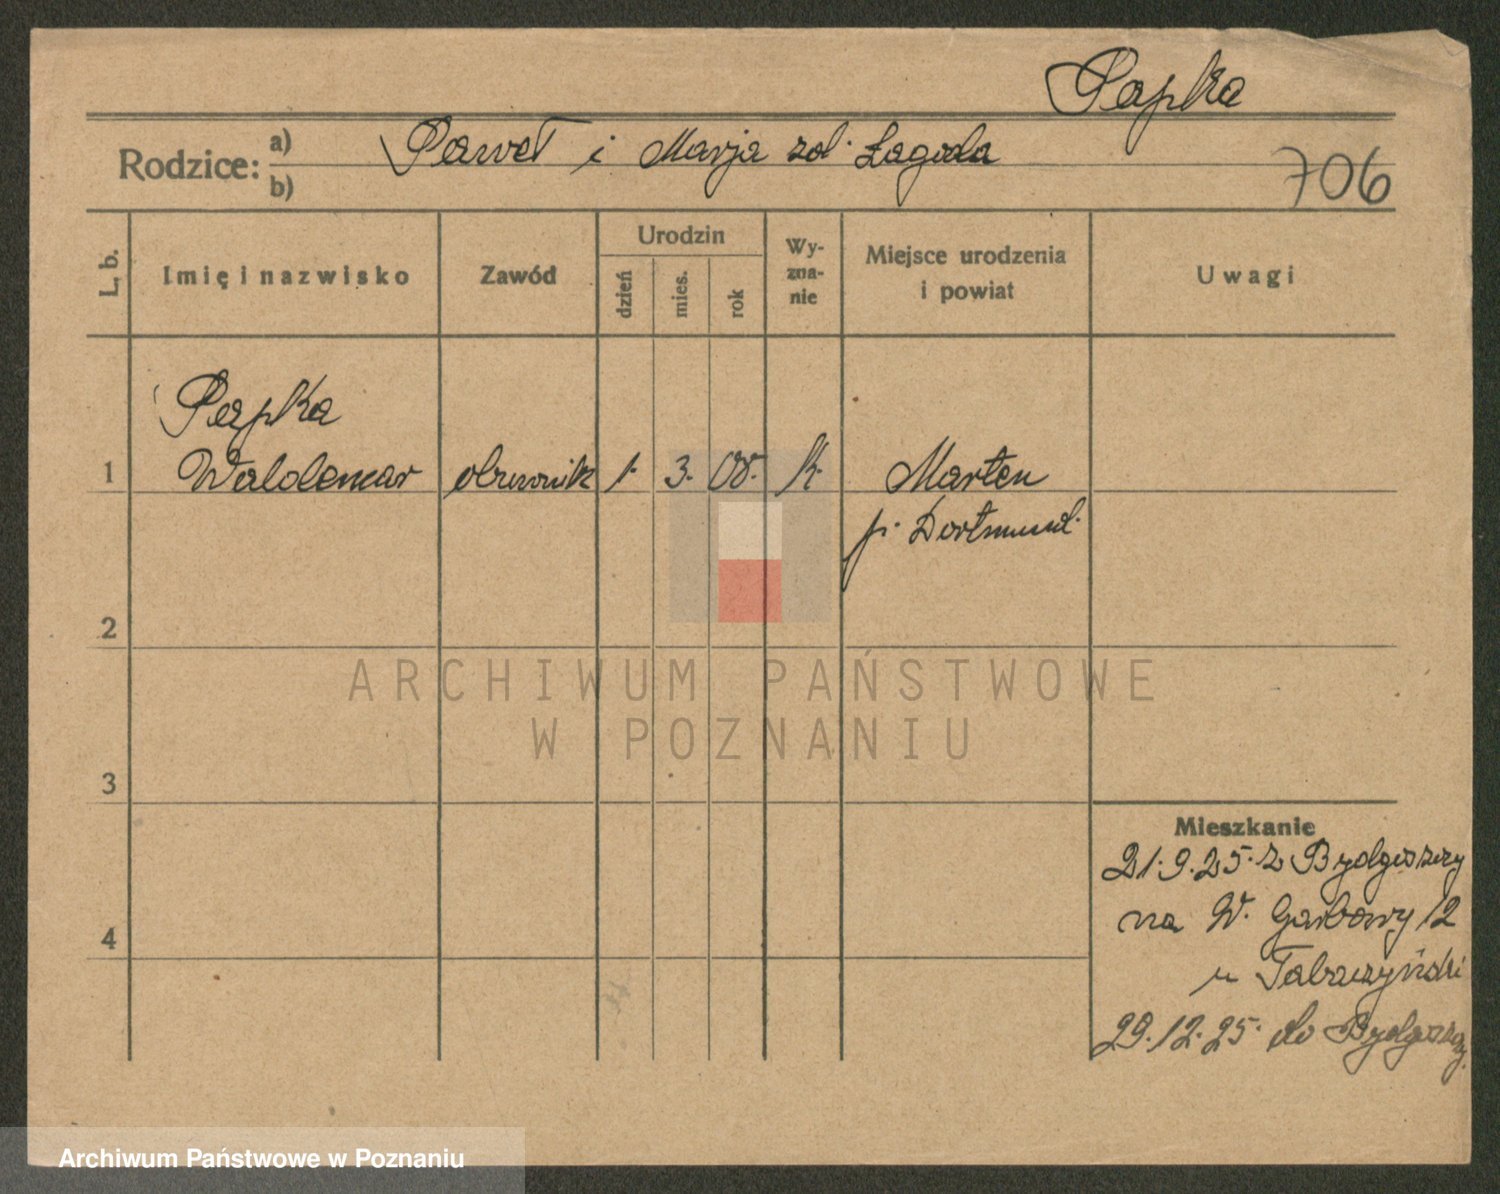 Papka
Rodzice: a) Paweł i Marja zd. Łagoda
b)
706
L. b.
Imię i nazwisko
Zawód
Urodzin
dzień
mies.
rok
Wy-
zna-
nie
Miejsce urodzenia
i powiat
Uwagi
Papka
1 Waldemar 1. 3. 08. k. Marten
p. Dortmund.
2
3
4
Mieszkanie
21.9.25. z Bydgoszczy
na W. Garbary 12
u
29.12.25. do Bydgoszczy.
ARCHIWUM PAŃSTWOWE
W POZNANIU
Archiwum Państwowe w Poznaniu